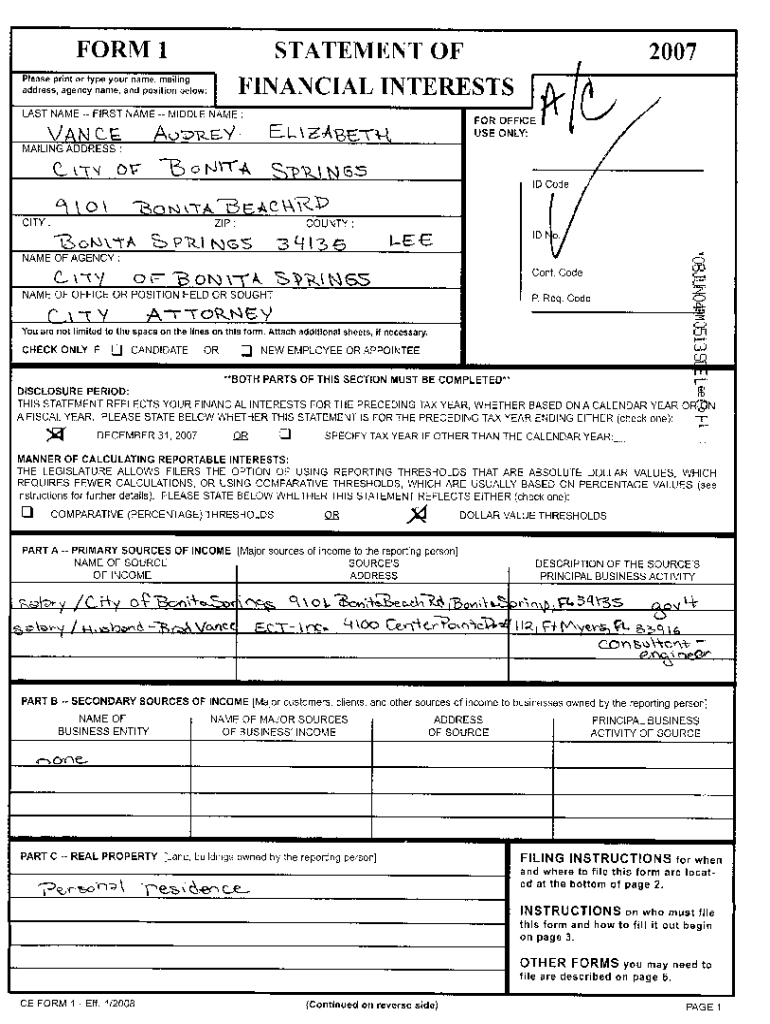 FORM 1 STATEMENT OF 2007
Please print or type your name, mailing
address, agency name, and position below:
FINANCIAL INTERESTS
A/C
LAST NAME -- FIRST NAME -- MIDDLE NAME :
FOR OFFICE
USE ONLY:
VANCE AUDREY ELIZABETH
MAILING ADDRESS :
CITY OF BONITA SPRINGS
ID Code
9101 BONITA BEACH RD
CITY : ZIP : COUNTY :
ID No.
BONITA SPRINGS 34135 LEE
NAME OF AGENCY :
CITY OF BONITA SPRINGS
Conf. Code
NAME OF OFFICE OR POSITION HELD OR SOUGHT
P. Req. Code
CITY ATTORNEY
You are not limited to the space on the lines on this form. Attach additional sheets, if necessary.
CHECK ONLY IF ☐ CANDIDATE OR ☐ NEW EMPLOYEE OR APPOINTEE
'08JUN04AM0513SOELeeCoFl
**BOTH PARTS OF THIS SECTION MUST BE COMPLETED**
DISCLOSURE PERIOD:
THIS STATEMENT REFLECTS YOUR FINANCIAL INTERESTS FOR THE PRECEDING TAX YEAR, WHETHER BASED ON A CALENDAR YEAR OR ON
A FISCAL YEAR. PLEASE STATE BELOW WHETHER THIS STATEMENT IS FOR THE PRECEDING TAX YEAR ENDING EITHER (check one):
☒ DECEMBER 31, 2007 OR ☐ SPECIFY TAX YEAR IF OTHER THAN THE CALENDAR YEAR:
MANNER OF CALCULATING REPORTABLE INTERESTS:
THE LEGISLATURE ALLOWS FILERS THE OPTION OF USING REPORTING THRESHOLDS THAT ARE ABSOLUTE DOLLAR VALUES, WHICH
REQUIRES FEWER CALCULATIONS, OR USING COMPARATIVE THRESHOLDS, WHICH ARE USUALLY BASED ON PERCENTAGE VALUES (see
instructions for further details). PLEASE STATE BELOW WHETHER THIS STATEMENT REFLECTS EITHER (check one):
☐ COMPARATIVE (PERCENTAGE) THRESHOLDS OR ☒ DOLLAR VALUE THRESHOLDS
PART A -- PRIMARY SOURCES OF INCOME [Major sources of income to the reporting person]
NAME OF SOURCE SOURCE'S DESCRIPTION OF THE SOURCE'S
OF INCOME ADDRESS PRINCIPAL BUSINESS ACTIVITY
salary / City of Bonita Springs 9101 Bonita Beach Rd, Bonita Springs, FL 34135 gov't
salary / Husband - Brad Vance ECT-Inc. 4100 Center Pointe Dr #112, Ft Myers, FL 33916
consultant -
engineer
PART B -- SECONDARY SOURCES OF INCOME [Major customers, clients, and other sources of income to businesses owned by the reporting person]
NAME OF NAME OF MAJOR SOURCES ADDRESS PRINCIPAL BUSINESS
BUSINESS ENTITY OF BUSINESS' INCOME OF SOURCE ACTIVITY OF SOURCE
none
PART C -- REAL PROPERTY [Land, buildings owned by the reporting person]
Personal residence
FILING INSTRUCTIONS for when
and where to file this form are locat-
ed at the bottom of page 2.
INSTRUCTIONS on who must file
this form and how to fill it out begin
on page 3.
OTHER FORMS you may need to
file are described on page 6.
CE FORM 1 - Eff. 1/2008 (Continued on reverse side) PAGE 1